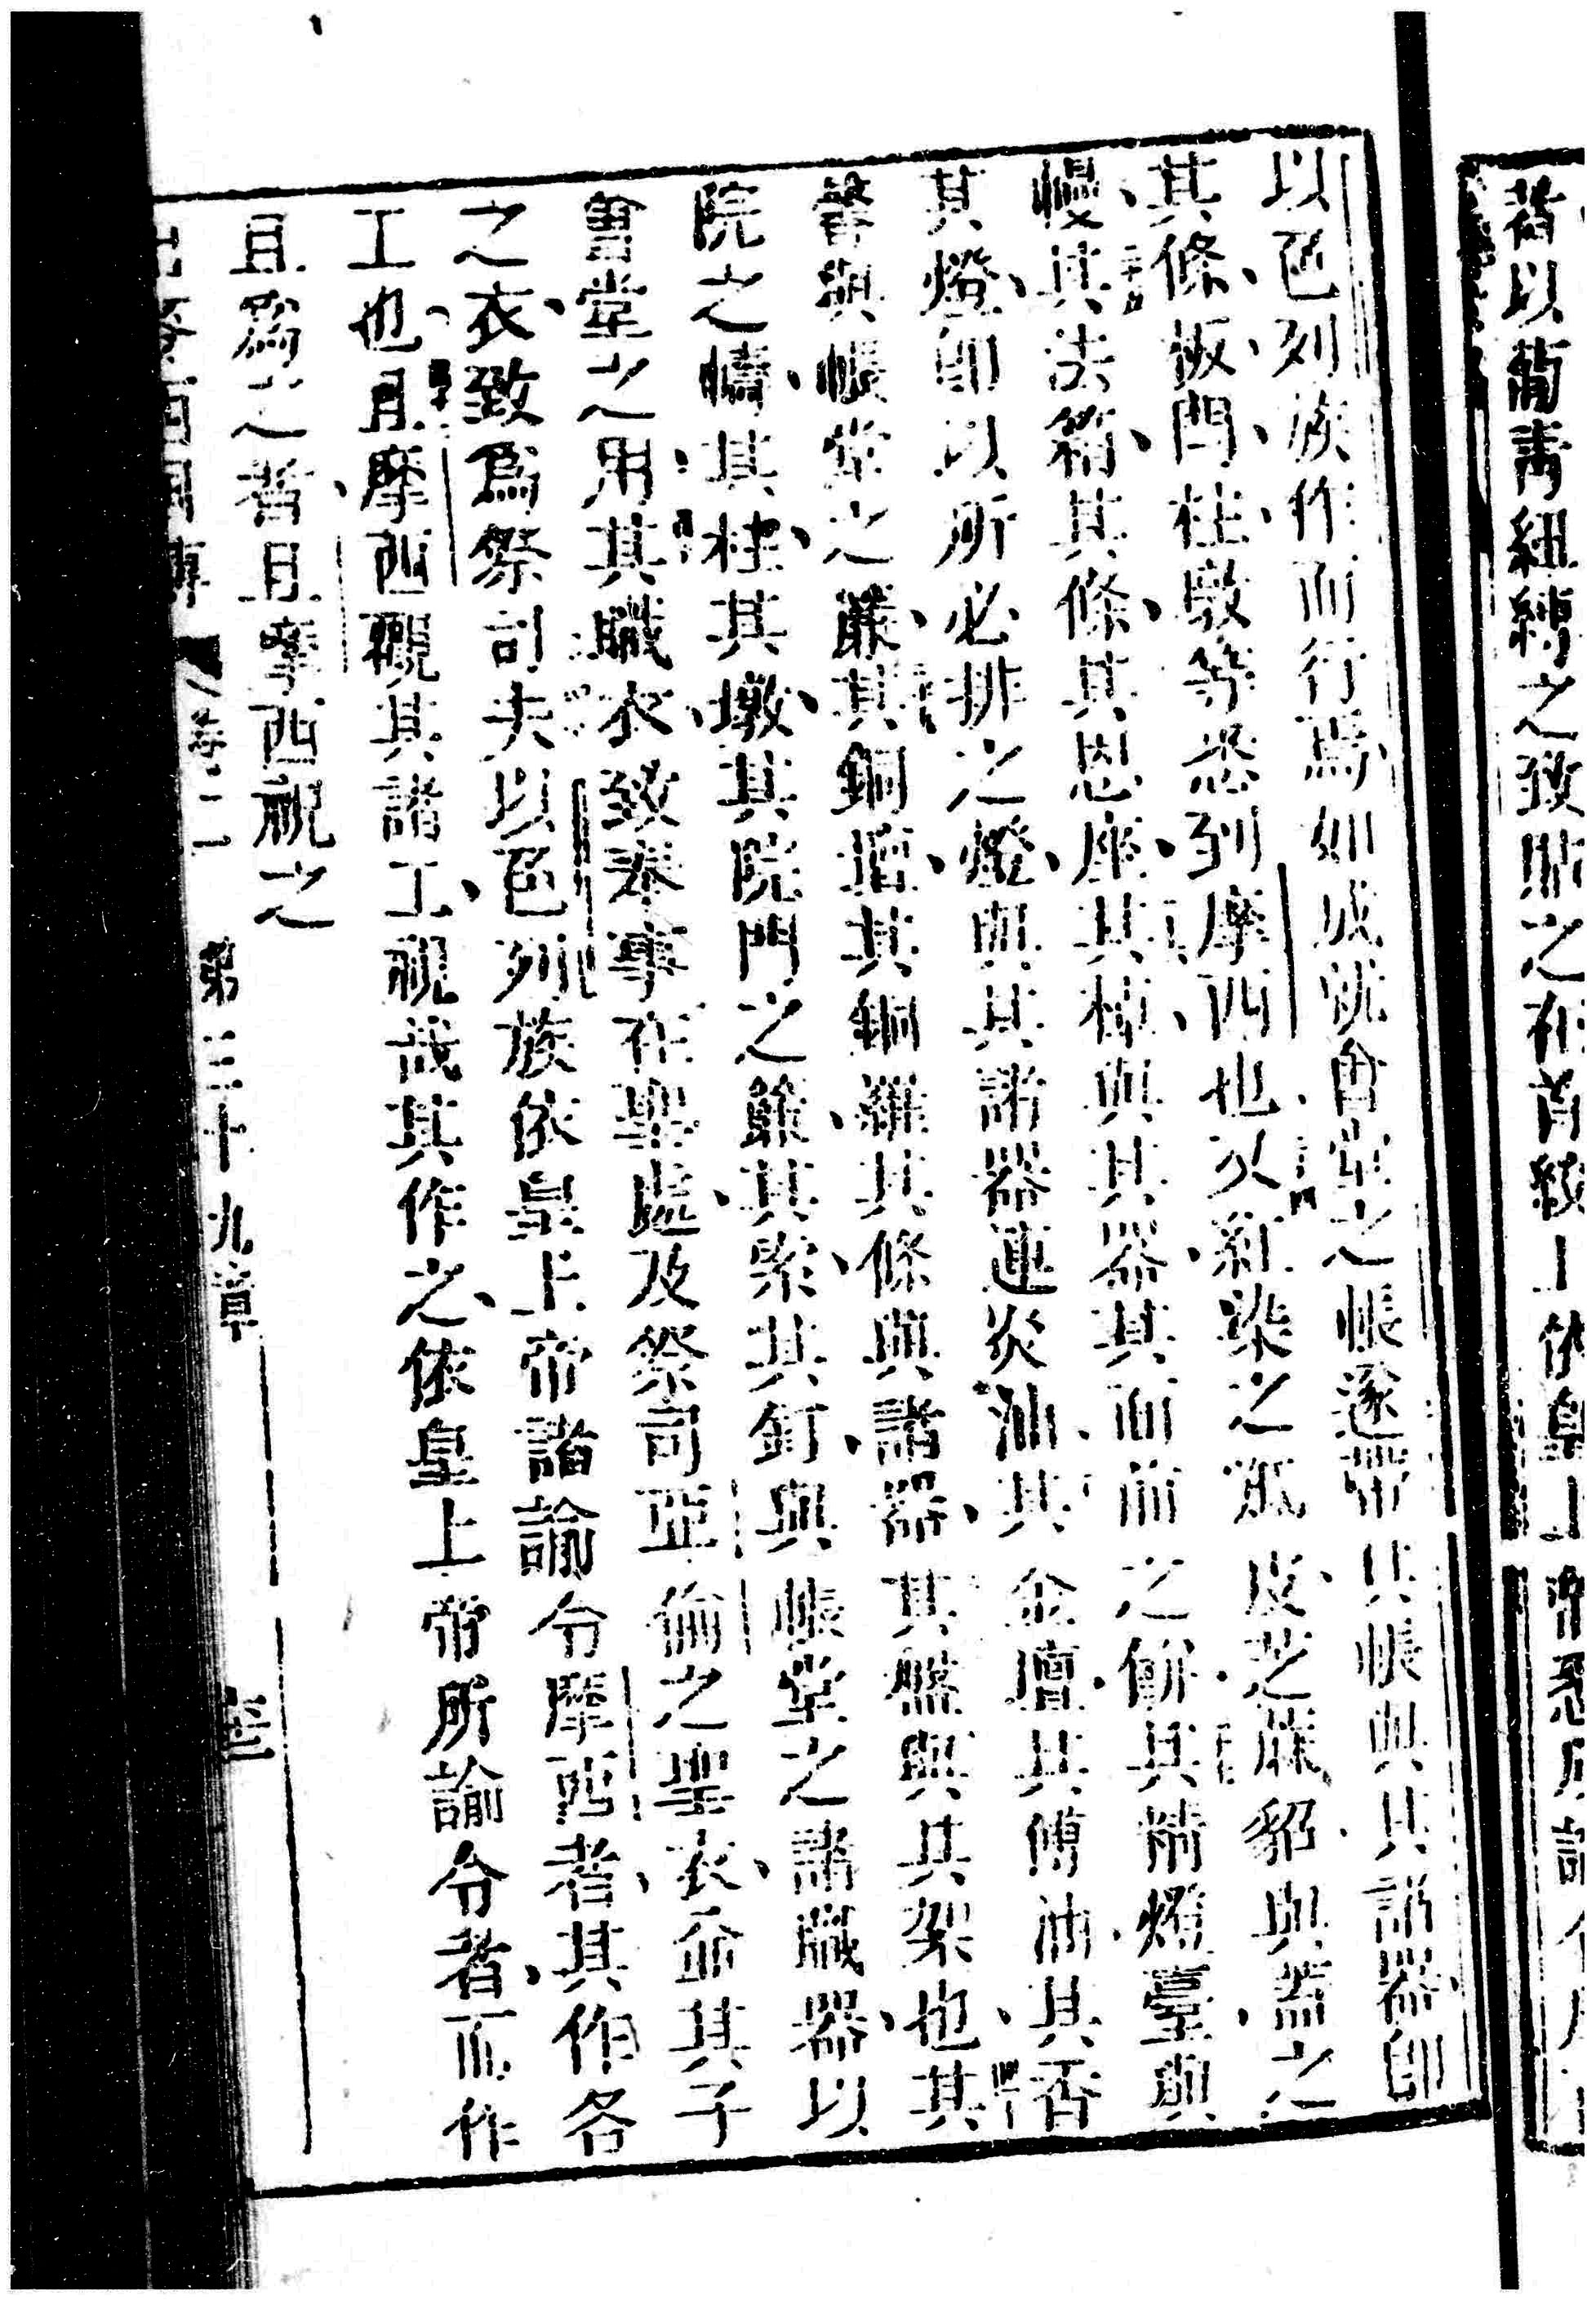 着以藍青紐縛之致貼之在首紋上依皇上帝
以色列族作而行焉如成就會堂之帳遂帶其帳與其諸器卽
其條板閂柱墩等悉列摩西也又紅染之羝皮之蔴貂與蓋之
幔其法箱其條其恩座其棹與其器其面前之餅其精燈臺與
其燈卽以所必排之燈與其諸器連炎油其金壇其傅油其香
馨與帳堂之簾其銅壇其銅羅其條與諸器其盤與其架也其
院之幬其柱其墩其院門之簾其索其釘與帳堂之諸職器以
會堂之用其職衣致奉事在聖處及祭司亞倫之聖衣並其子
之衣致爲祭司夫以色列族依皇上帝諸諭令摩西者其作各
工也且摩西觀其諸工視哉其作之依皇上帝所諭令者而作
且爲之者且摩西祝之
卷二 第三十九章